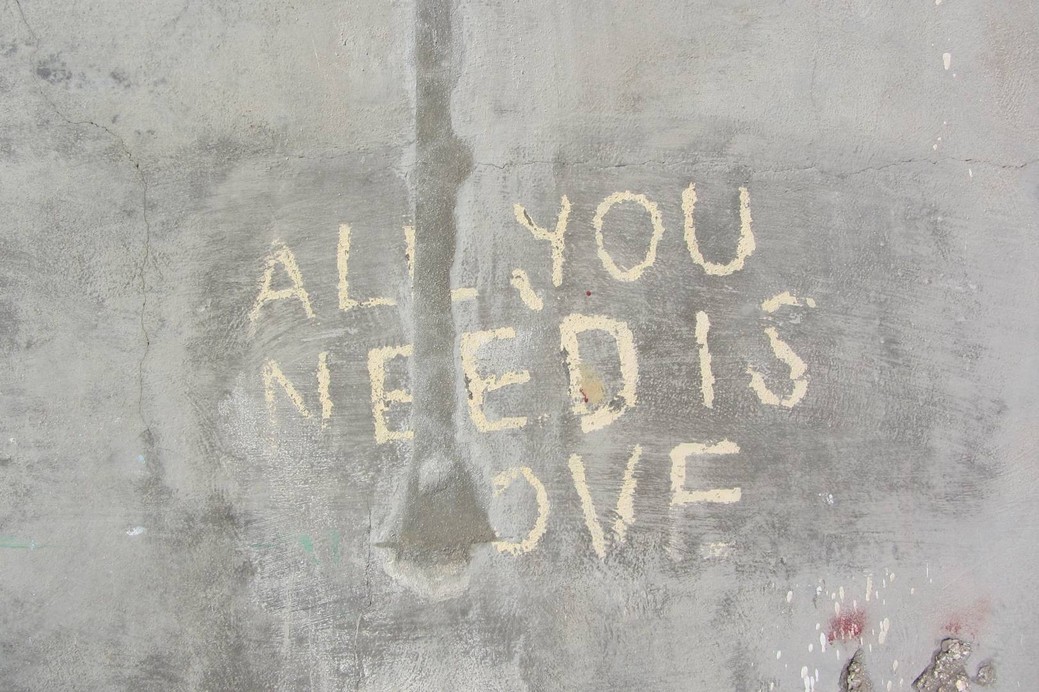 ALL YOU
NEED IS
OVE